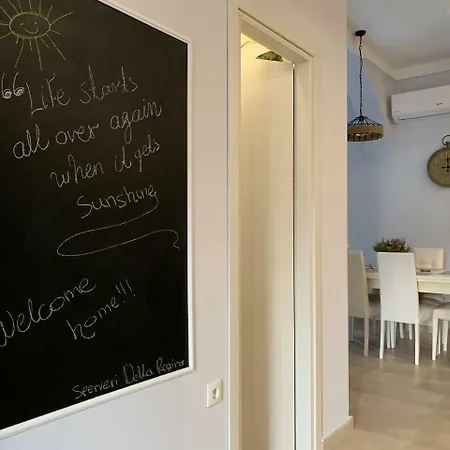 “Life starts
all over again
when it gets
sunshine
Welcome
home!!!
Sperveri Della Regina